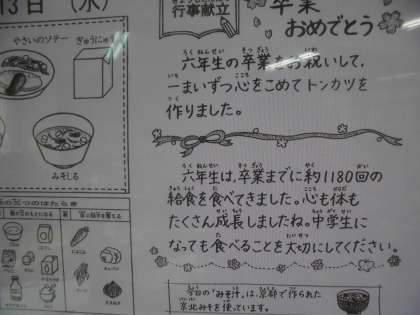 13日 (水)
行事献立
卒業
おめでとう
やさいのソテー
ぎゅうにゅう
みそしる
六年生の卒業をお祝いして、
一まいずつ心をこめてトンカツを
作りました。
六年生は、卒業までに約1180回の
給食を食べてきました。心も体も
たくさん成長しましたね。中学生に
なっても食べることを大切にしてください。
今日の「みそ汁」は、京都で作られた
京北みそを使っています。